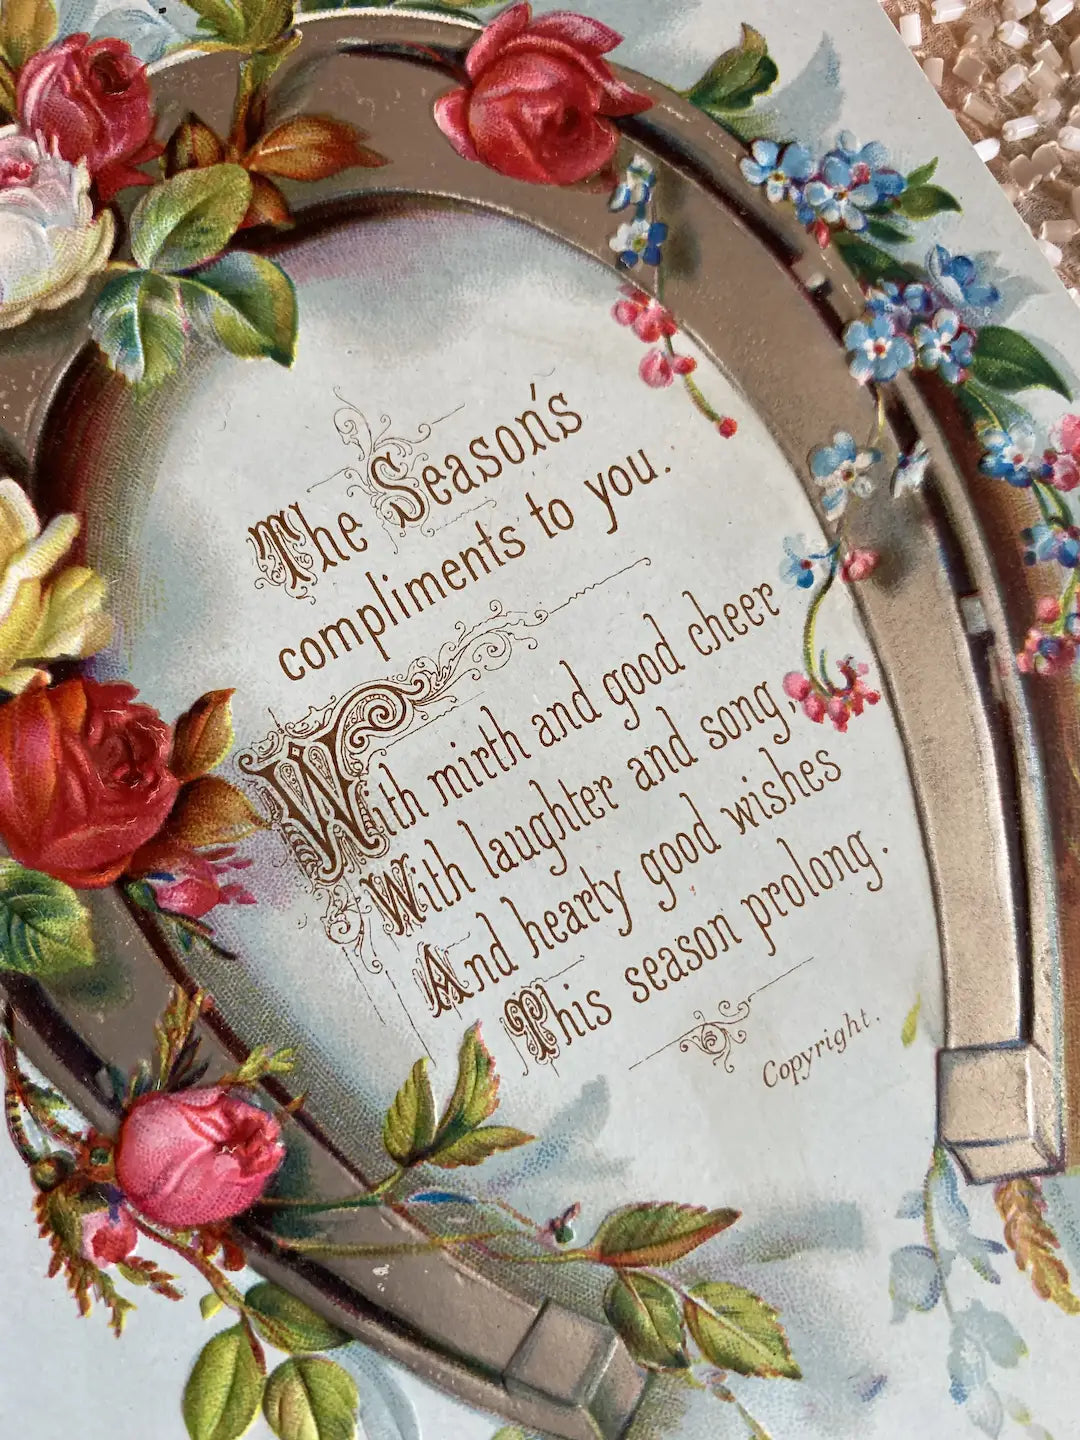 The Season's
compliments to you.
With mirth and good cheer
With laughter and song,
And hearty good wishes
This season prolong.
Copyright.